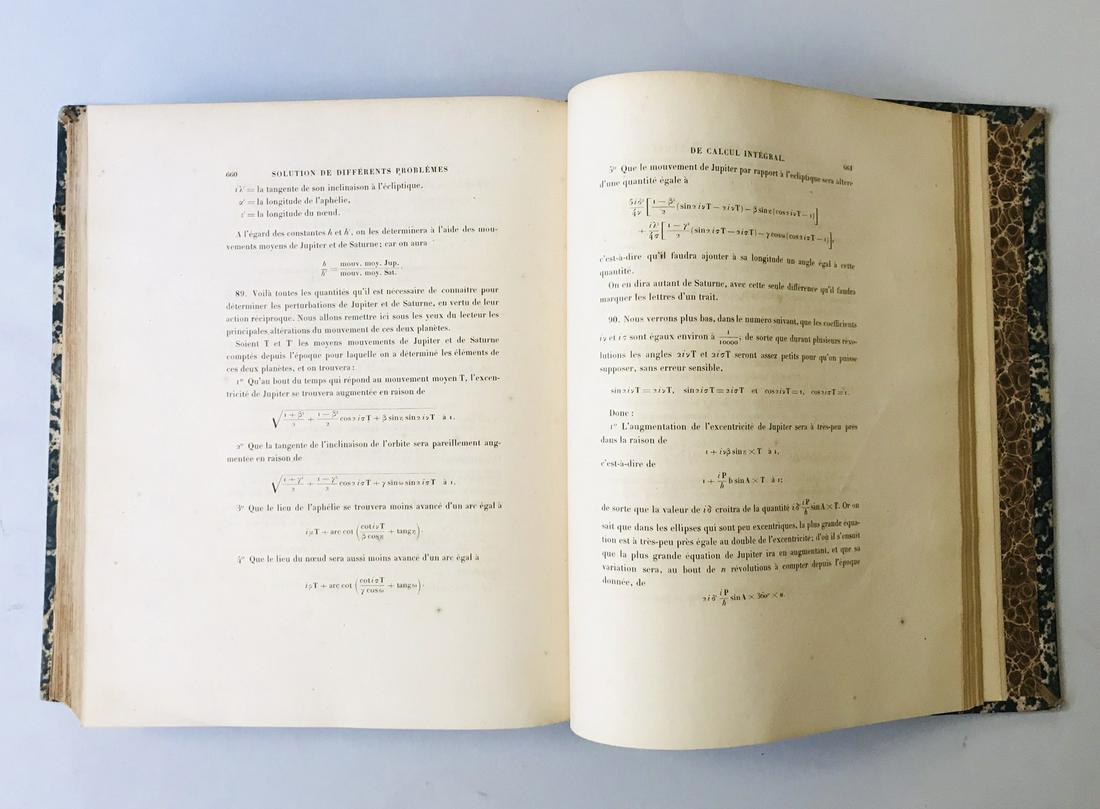 660 SOLUTION DE DIFFÉRENTS PROBLÈMES
iλ' = la tangente de son inclinaison à l'écliptique,
α' = la longitude de l'aphélie,
ε' = la longitude du nœud.
A l'égard des constantes h et h', on les déterminera à l'aide des mou-
vements moyens de Jupiter et de Saturne; car on aura
h/h' = mouv. moy. Jup. / mouv. moy. Sat.
89. Voilà toutes les quantités qu'il est nécessaire de connaître pour
déterminer les perturbations de Jupiter et de Saturne, en vertu de leur
action réciproque. Nous allons remettre ici sous les yeux du lecteur les
principales altérations du mouvement de ces deux planètes.
Soient T et T' les moyens mouvements de Jupiter et de Saturne
comptés depuis l'époque pour laquelle on a déterminé les éléments de
ces deux planètes, et on trouvera :
1° Qu'au bout du temps qui répond au mouvement moyen T, l'excen-
tricité de Jupiter se trouvera augmentée en raison de
√((1+β²)/2 + (1−β²)/2 cos2iνT + β sinε sin2iνT) à 1.
2° Que la tangente de l'inclinaison de l'orbite sera pareillement aug-
mentée en raison de
√((1+γ²)/2 + (1−γ²)/2 cos2iσT + γ sinω sin2iσT) à 1.
3° Que le lieu de l'aphélie se trouvera moins avancé d'un arc égal à
iμT + arc cot (cotiνT/(β cosε) + tangε).
4° Que le lieu du nœud sera aussi moins avancé d'un arc égal à
iρT + arc cot (cotiσT/(γ cosω) + tangω).
DE CALCUL INTÉGRAL. 661
5° Que le mouvement de Jupiter par rapport à l'écliptique sera altéré
d'une quantité égale à
5iδ²/4ν [(1−β²)/2 (sin2iνT − 2iνT) − β sinε(cos2iνT − 1)]
+ iλ²/4σ [(1−γ²)/2 (sin2iσT − 2iσT) − γ cosω(cos2iσT − 1)],
c'est-à-dire qu'il faudra ajouter à sa longitude un angle égal à cette
quantité.
On en dira autant de Saturne, avec cette seule différence qu'il faudra
marquer les lettres d'un trait.
90. Nous verrons plus bas, dans le numéro suivant, que les coefficients
iν et iσ sont égaux environ à 1/10000; de sorte que durant plusieurs révo-
lutions les angles 2iνT et 2iσT seront assez petits pour qu'on puisse
supposer, sans erreur sensible,
sin2iνT = 2iνT, sin2iσT = 2iσT et cos2iνT = 1, cos2iσT = 1.
Donc :
1° L'augmentation de l'excentricité de Jupiter sera à très-peu près
dans la raison de
1 + iνβ sinε × T à 1,
c'est-à-dire de
1 + iP/h b sinA × T à 1;
de sorte que la valeur de iδ croîtra de la quantité iδ iP/h sinA × T. Or on
sait que dans les ellipses qui sont peu excentriques, la plus grande équa-
tion est à très-peu près égale au double de l'excentricité; d'où il s'ensuit
que la plus grande équation de Jupiter ira en augmentant, et que sa
variation sera, au bout de n révolutions à compter depuis l'époque
donnée, de
2iδ iP/h sinA × 360° × n.